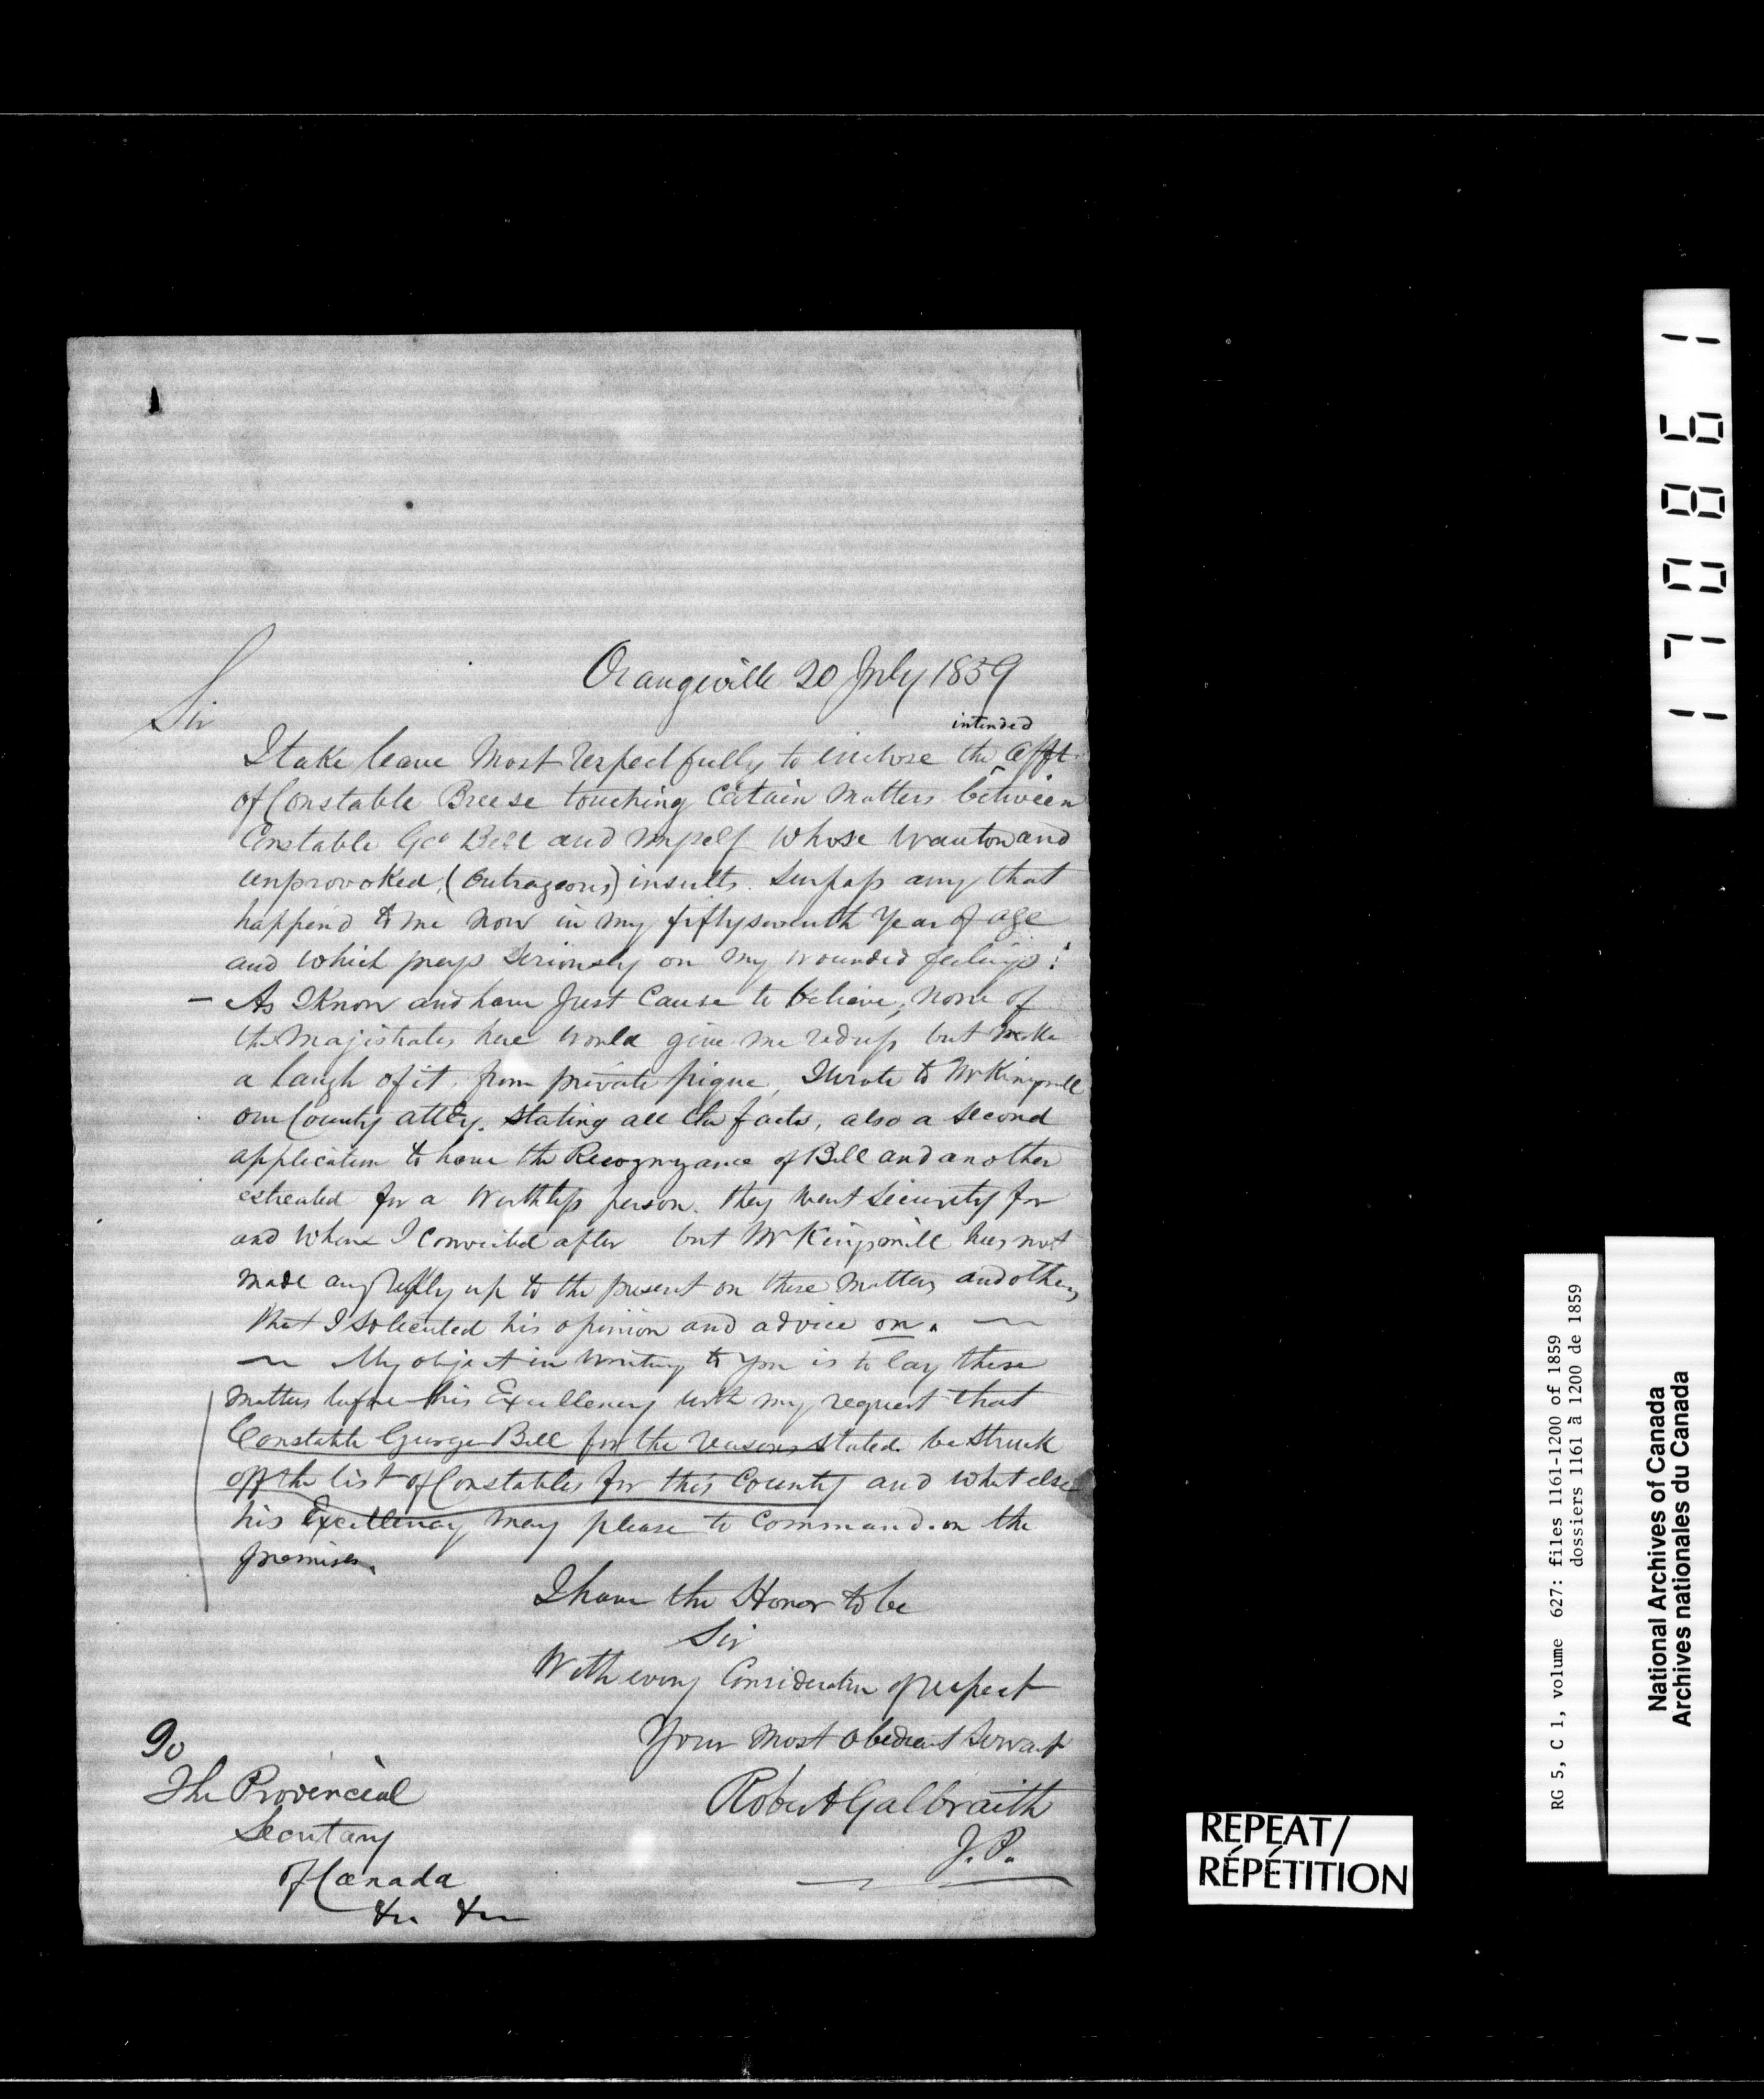 Orangeville 20 July 1859
Sir
intended
I take leave Most respectfully to inclose the Afft
of Constable Breese touching Certain Matters between
Constable Geo Bell and myself whose Wanton and
unprovoked, (Outrageous) insults. Surpass any that
happend to me now in my fiftyseventh Year of age
and which preys Seriously on my wounded feelings!
— As I Know and have Just Cause to believe, none of
the Magistrates here would give me redress but make
a laugh of it, from private pique, I wrote to Mr Kingsmill
our County atty. stating all the facts, also a second
application to have the Recognyzance of Bell and another
estreated for a Worthless person. they went security for
and whom I convicted after but Mr Kingsmill has not
made any reply up to the present on these matters and others
that I solicited his opinion and advice on. ~
~ My object in writing to You is to lay these
matters before his Excellency with my request that
Constable George Bell for the reasons stated be struck
off the list of Constables for this County and what else
his Excellency may please to Command. on the
premises.
I have the Honor to be
Sir
With every Consideration of respect
Your most obedient servant
Robert Galbraith
J.P.
To
The Provincial
Secretary
of Canada
&c &c
170861
RG 5, C 1, volume 627: files 1161-1200 of 1859
dossiers 1161 à 1200 de 1859
National Archives of Canada
Archives nationales du Canada
REPEAT/
RÉPÉTITION